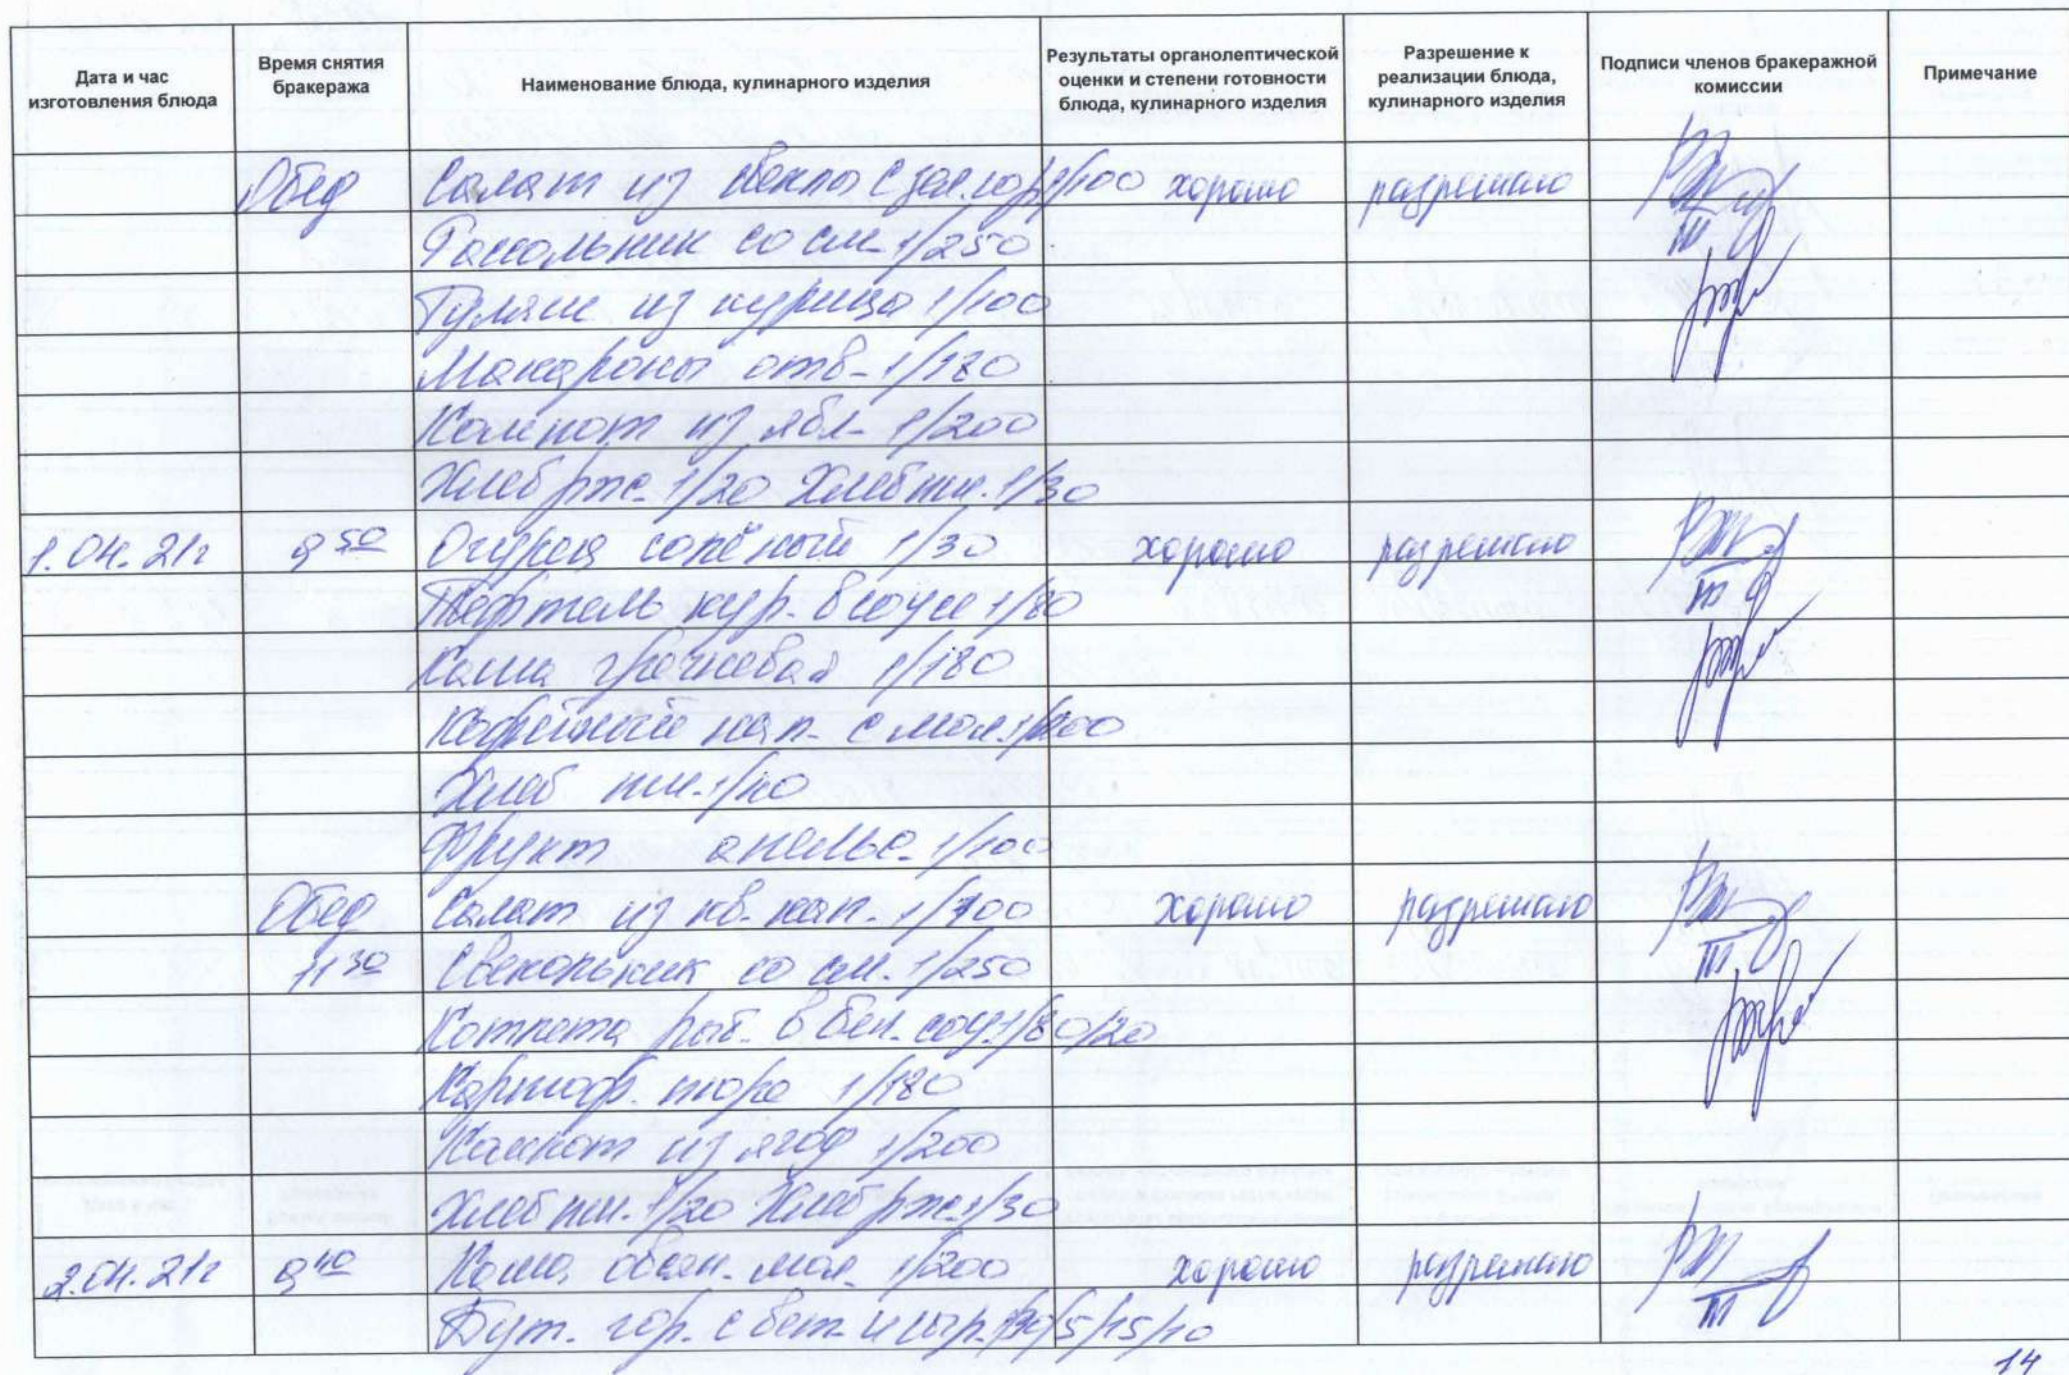 Дата и час изготовления блюда | Время снятия бракеража | Наименование блюда, кулинарного изделия | Результаты органолептической оценки и степени готовности блюда, кулинарного изделия | Разрешение к реализации блюда, кулинарного изделия | Подписи членов бракеражной комиссии | Примечание
Обед Салат из свеклы с зел. гор. 1/100 хорошо разрешаю
Рассольник со см. 1/250
Гуляш из курицы 1/100
Макароны отв. 1/180
Компот из ябл. 1/200
Хлеб рж. 1/20 Хлеб пш. 1/30
1.04.21г 9 50 Огурец солёный 1/30 хорошо разрешаю
Тефтель кур. в соусе 1/80
Каша гречневая 1/180
Кофейный нап. с мол. 1/200
Хлеб пш. 1/40
Фрукт апельс. 1/100
Обед Салат из кв. кап. 1/100 хорошо разрешаю
11 30 Свекольник со см. 1/250
Котлета рыб. в бел. соус. 1/80/20
Картоф. пюре 1/180
Компот из ягод 1/200
Хлеб пш. 1/20 Хлеб рж. 1/30
2.04.21г 9 40 Каша овсян. мол. 1/200 хорошо разрешаю
Бут. гор. с вет. и сыр. /5/15/10
14